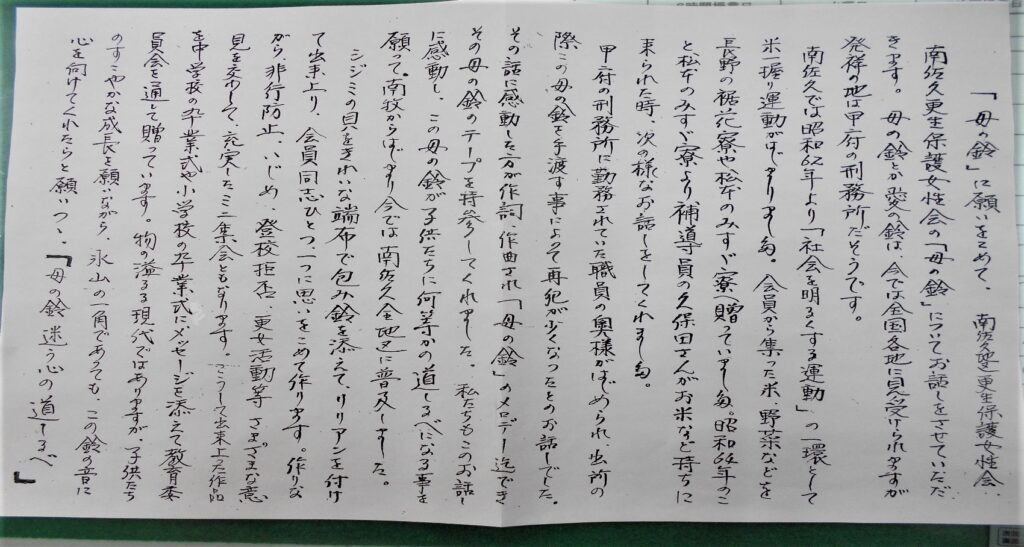 「母の鈴」に願いをこめて、 南佐久地区更生保護女性会
南佐久更生保護女性会の「母の鈴」についてお話しをさせていただ
きます。 母の鈴とか愛の鈴は、今では全国各地に見受けられますが
発祥の地は甲府の刑務所だそうです。
南佐久では昭和62年より「社会を明るくする運動」の一環として
米一握り運動がはじまりました。会員から集った米、野菜などを
長野の裾花寮や松本のみすゞ寮へ贈っていました。昭和64年のこ
と松本のみすゞ寮より補導員の久保田さんがお米などを持ちに
来られた時、次の様なお話しをしてくれました。
甲府の刑務所に勤務されていた職員の奥様がはじめられ、出所の
際この母の鈴を手渡す事によって再犯が少くなったとのお話しでした。
その話に感動した方が作詞、作曲され「母の鈴」のメロデー迄でき
その母の鈴のテープを持参してくれました。私たちもこのお話し
に感動し、この母の鈴が子供たちに何等かの道しるべになる事を
願って、南牧からはじまり今では南佐久全地区に普及しました。
シジミの貝をきれいな端布で包み鈴を添えて、リリアンを付け
て出来上り、会員同志ひとつ一つに思いをこめて作ります。作りな
がら、非行防止、いじめ、登校拒否、更女活動等 さまざまな意
見を交わして、充実したミニ集会ともなります。こうして出来上った作品
を中学校の卒業式や小学校の卒業式にメッセージを添えて教育委
員会を通して贈っています。物の溢るる現代ではありますが、子供たち
のすこやかな成長を願いながら、氷山の一角であっても、この鈴の音に
心を向けてくれたらと願いつつ、「母の鈴迷う心の道しるべ」